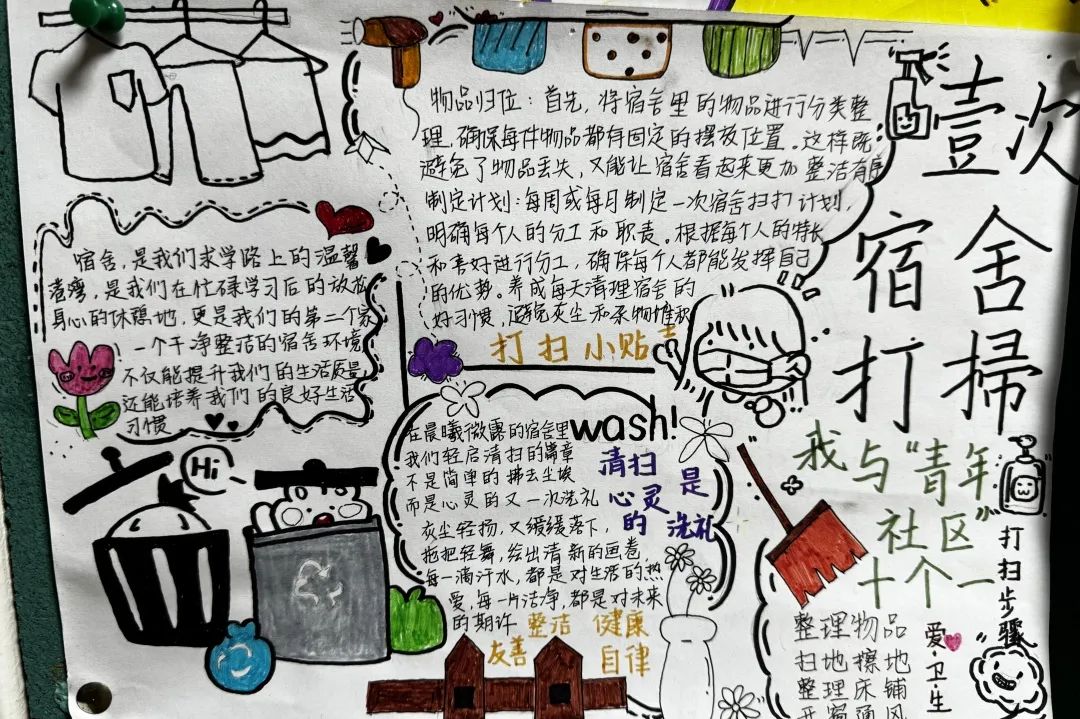 壹次
宿舍
打掃
我与“青年
社区”
十个一
物品归位：首先，将宿舍里的物品进行分类整
理，确保每件物品都有固定的摆放位置。这样既
避免了物品丢失，又能让宿舍看起来更加整洁有序
制定计划：每周或每月制定一次宿舍扫打计划，
明确每个人的分工和职责。根据每个人的特长
和喜好进行分工，确保每个人都能发挥自己
的优势。养成每天清理宿舍的
好习惯，避免灰尘和杂物堆积
打扫小贴士
宿舍，是我们求学路上的温馨
港湾，是我们在忙碌学习后的放松
身心的休憩地，更是我们的第二个家
一个干净整洁的宿舍环境
不仅能提升我们的生活质量，
还能培养我们的良好生活
习惯
Hi
wash!
清扫是
心灵
的洗礼
在晨曦微露的宿舍里
我们轻启清扫的篇章
不是简单的拂去尘埃
而是心灵的又一次洗礼
灰尘轻扬，又缓缓落下，
拖把轻舞，绘出清新的画卷，
每一滴汗水，都是对生活的热
爱，每一片洁净，都是对未来
的期许
整洁 健康
友善 自律
打扫步骤
整理物品
扫地擦地
整理床铺
开窗通风
爱·卫生